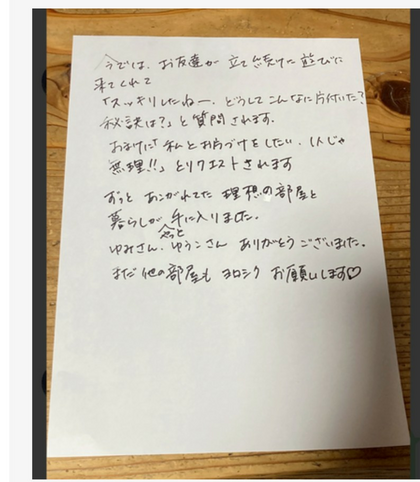 今では、お友達が立て続けに遊びに
来てくれて
「スッキリしたねー、どうしてこんなに片付いた?
秘訣は?」と質問されます。
おまけに「私とお片づけをしたい、1人じゃ
無理!!」とリクエストされます
ずっとあこがれてた理想の部屋と
暮らしが手に入りました。
ゆみさん、ゆうこさん ありがとうございました。
まだ他の部屋もヨロシクお願いします♡